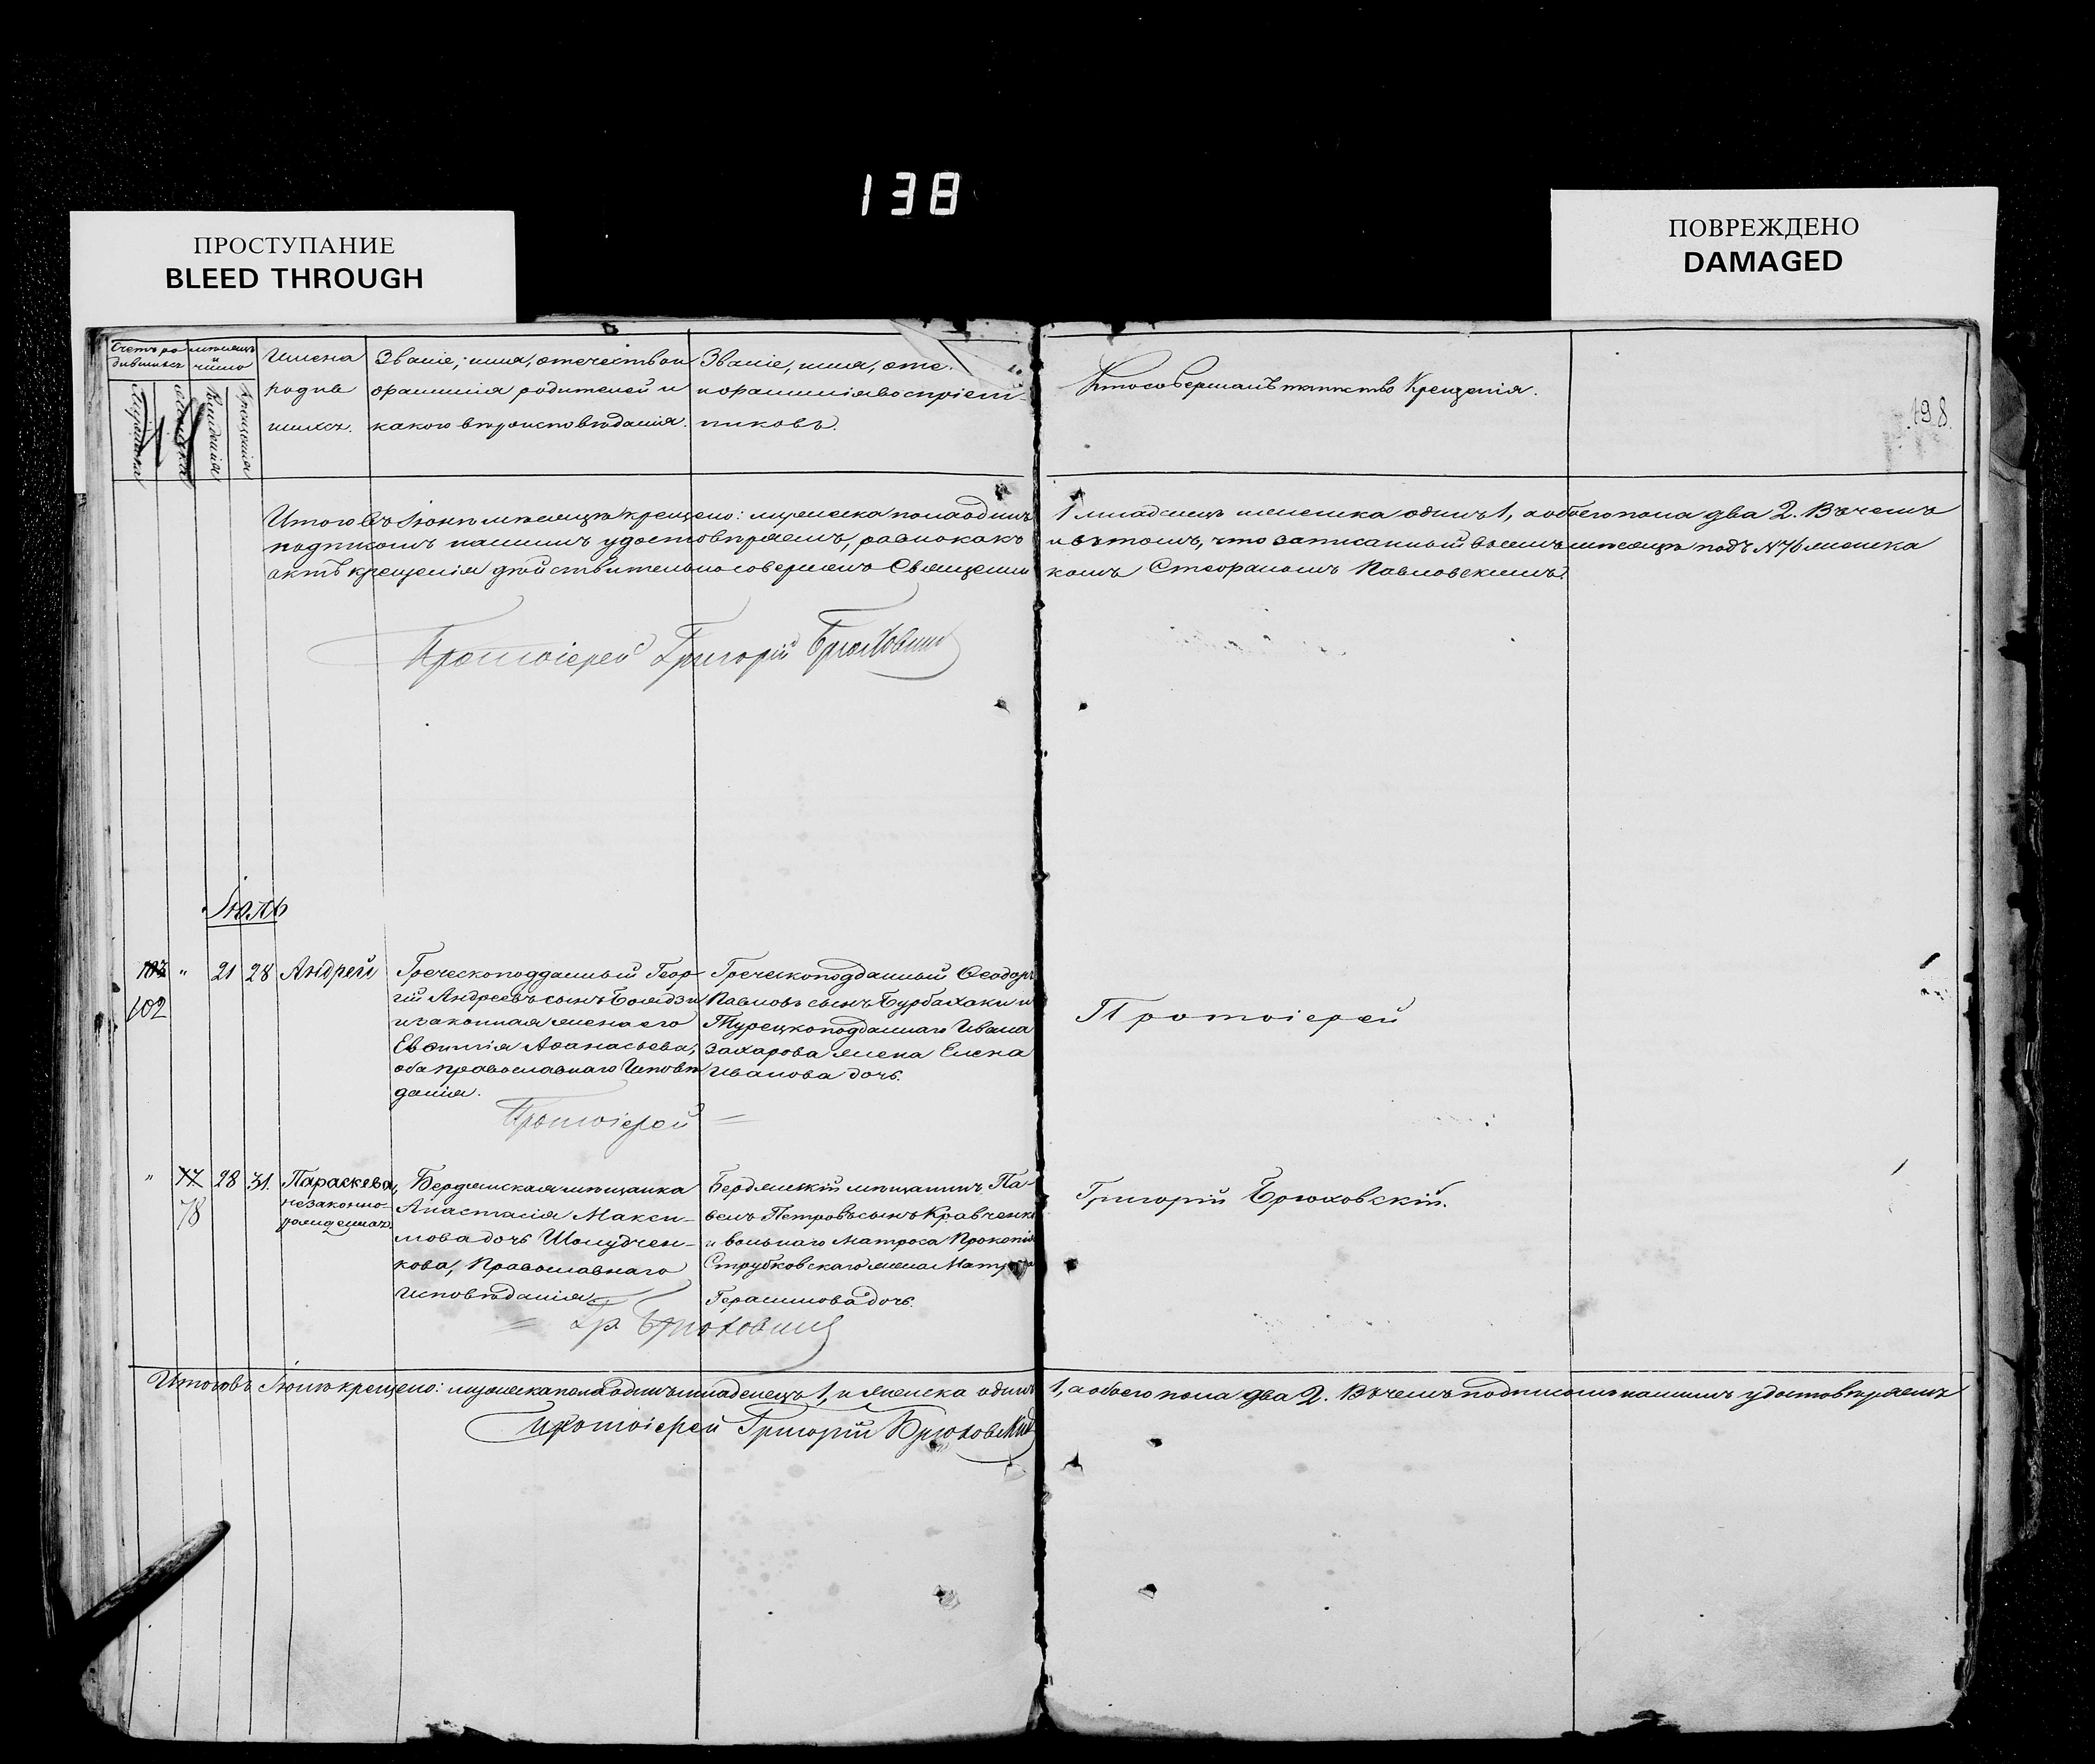 138
ПРОСТУПАНИЕ
BLEED THROUGH
ПОВРЕЖДЕНО
DAMAGED
Счетъ ро
дившихся
мѣсяцъ
и
число
Рожденія
Крещенія
Имена
родив
шихся.
Званіе, имя, отечество и
фамилія родителей и
какого вѣроисповѣданія.
Званіе, имя, оте.
и фамилія воспріем-
никовъ.
Кто совершалъ таинство Крещенія.
198.
Итого въ Іюнѣ мѣсяцѣ крещено: мужеска пола одинъ 1 младенецъ женска одинъ 1, а обоего пола два 2. Въ чемъ
подписомъ нашимъ удостовѣряемъ, равно какъ и въ томъ, что записанный въ семъ мѣсяцѣ подъ № 76 женска
актъ крещенія дѣйствительно совершенъ Священни комъ Стефаномъ Павловскимъ.
Протоіерей Григорій Брюховскій
Іюль
103 " 21 28 Андрей
102
Греческоподданный Геор-
гій Андреевъ сынъ
и законная жена его
Евфимія Афанасьева,
оба православнаго Исповѣ
данія.
Греческоподданный Феодоръ
Павловъ сынъ Бурбахаки и
Турецкоподданнаго Ивана
Захарова жена Елена
Иванова дочь.
Протоіерей
Протоіерей =
" 77 28 31. Параскева,
78
незаконно-
рожденная.
Бердянская мѣщанка
Анастасія Макси-
мова дочь Шолудчен-
кова, Православнаго
Исповѣданія
Бердянскій мѣщанинъ Па-
велъ Петровъ сынъ Кравченко
и вольнаго матроса Прокопія
Струбковскаго жена
Герасимова дочь.
Григорій Брюховскій.
= Гр Брюховскій
Итого въ Іюлѣ крещено: мужеска пола одинъ младенецъ 1, и женска одинъ 1, а обоего пола два 2. Въ чемъ подписомъ нашимъ удостовѣряемъ
Протоіерей Григорій Брюховскій